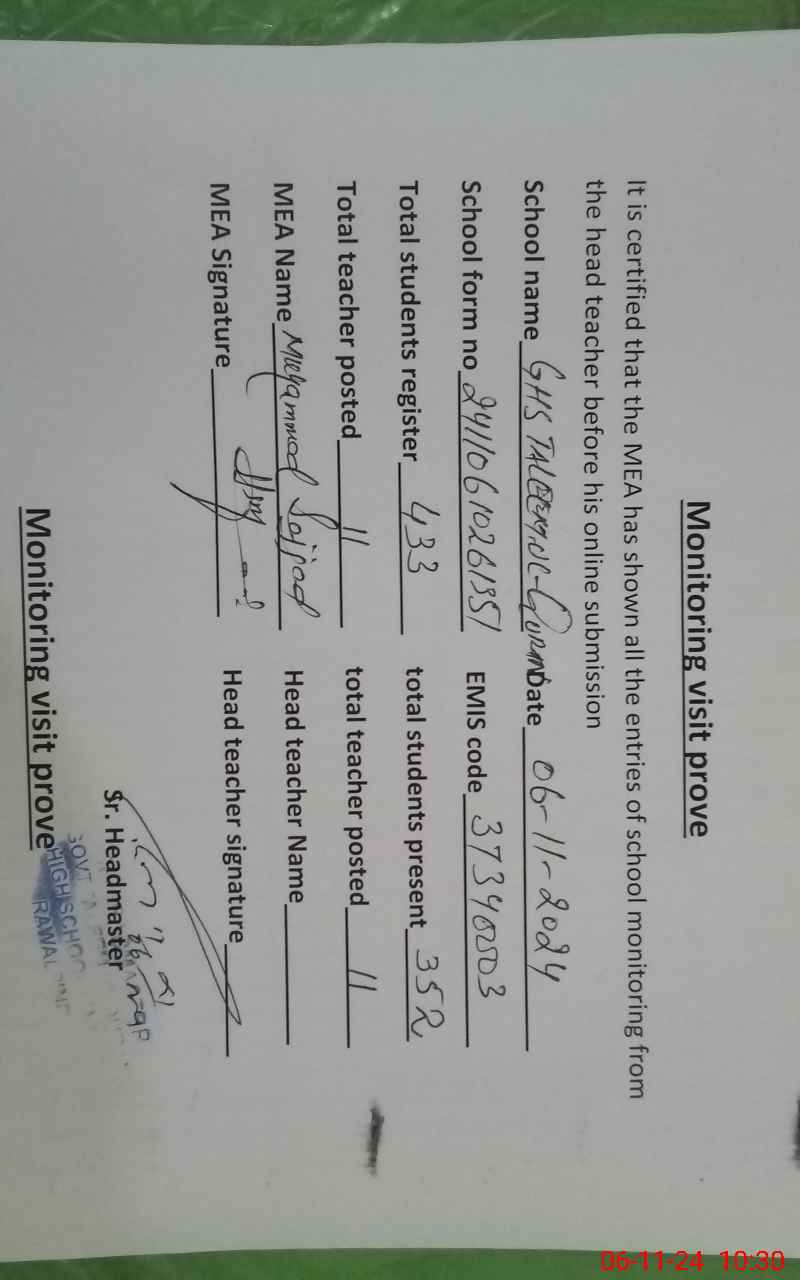 Monitoring visit prove
It is certified that the MEA has shown all the entries of school monitoring from
the head teacher before his online submission
School name GHS TALEEM UL-QURAN Date 06-11-2024
School form no 24110610261351 EMIS code 37340203
Total students register 433 total students present 352
Total teacher posted 11 total teacher posted 11
MEA Name Muhammad Sajjad Head teacher Name
MEA Signature Head teacher signature
Sr. Headmaster
GOVT
HIGH SCHOO
RAWAL
Monitoring visit prove
06-11-24 10:30